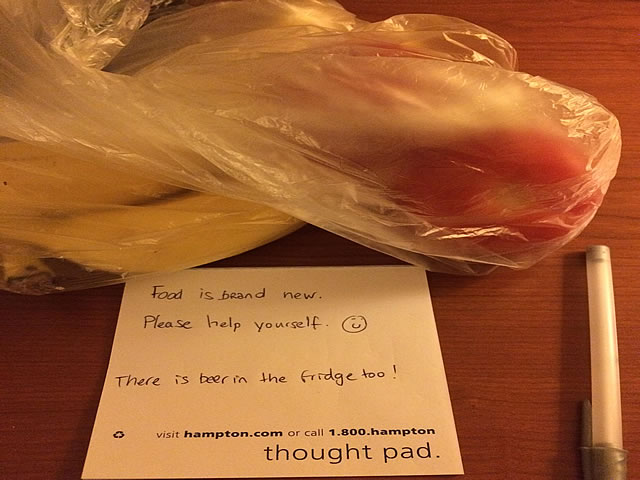 Food is brand new.
Please help yourself.
There is beer in the fridge too!
visit hampton.com or call 1.800.hampton
thought pad.